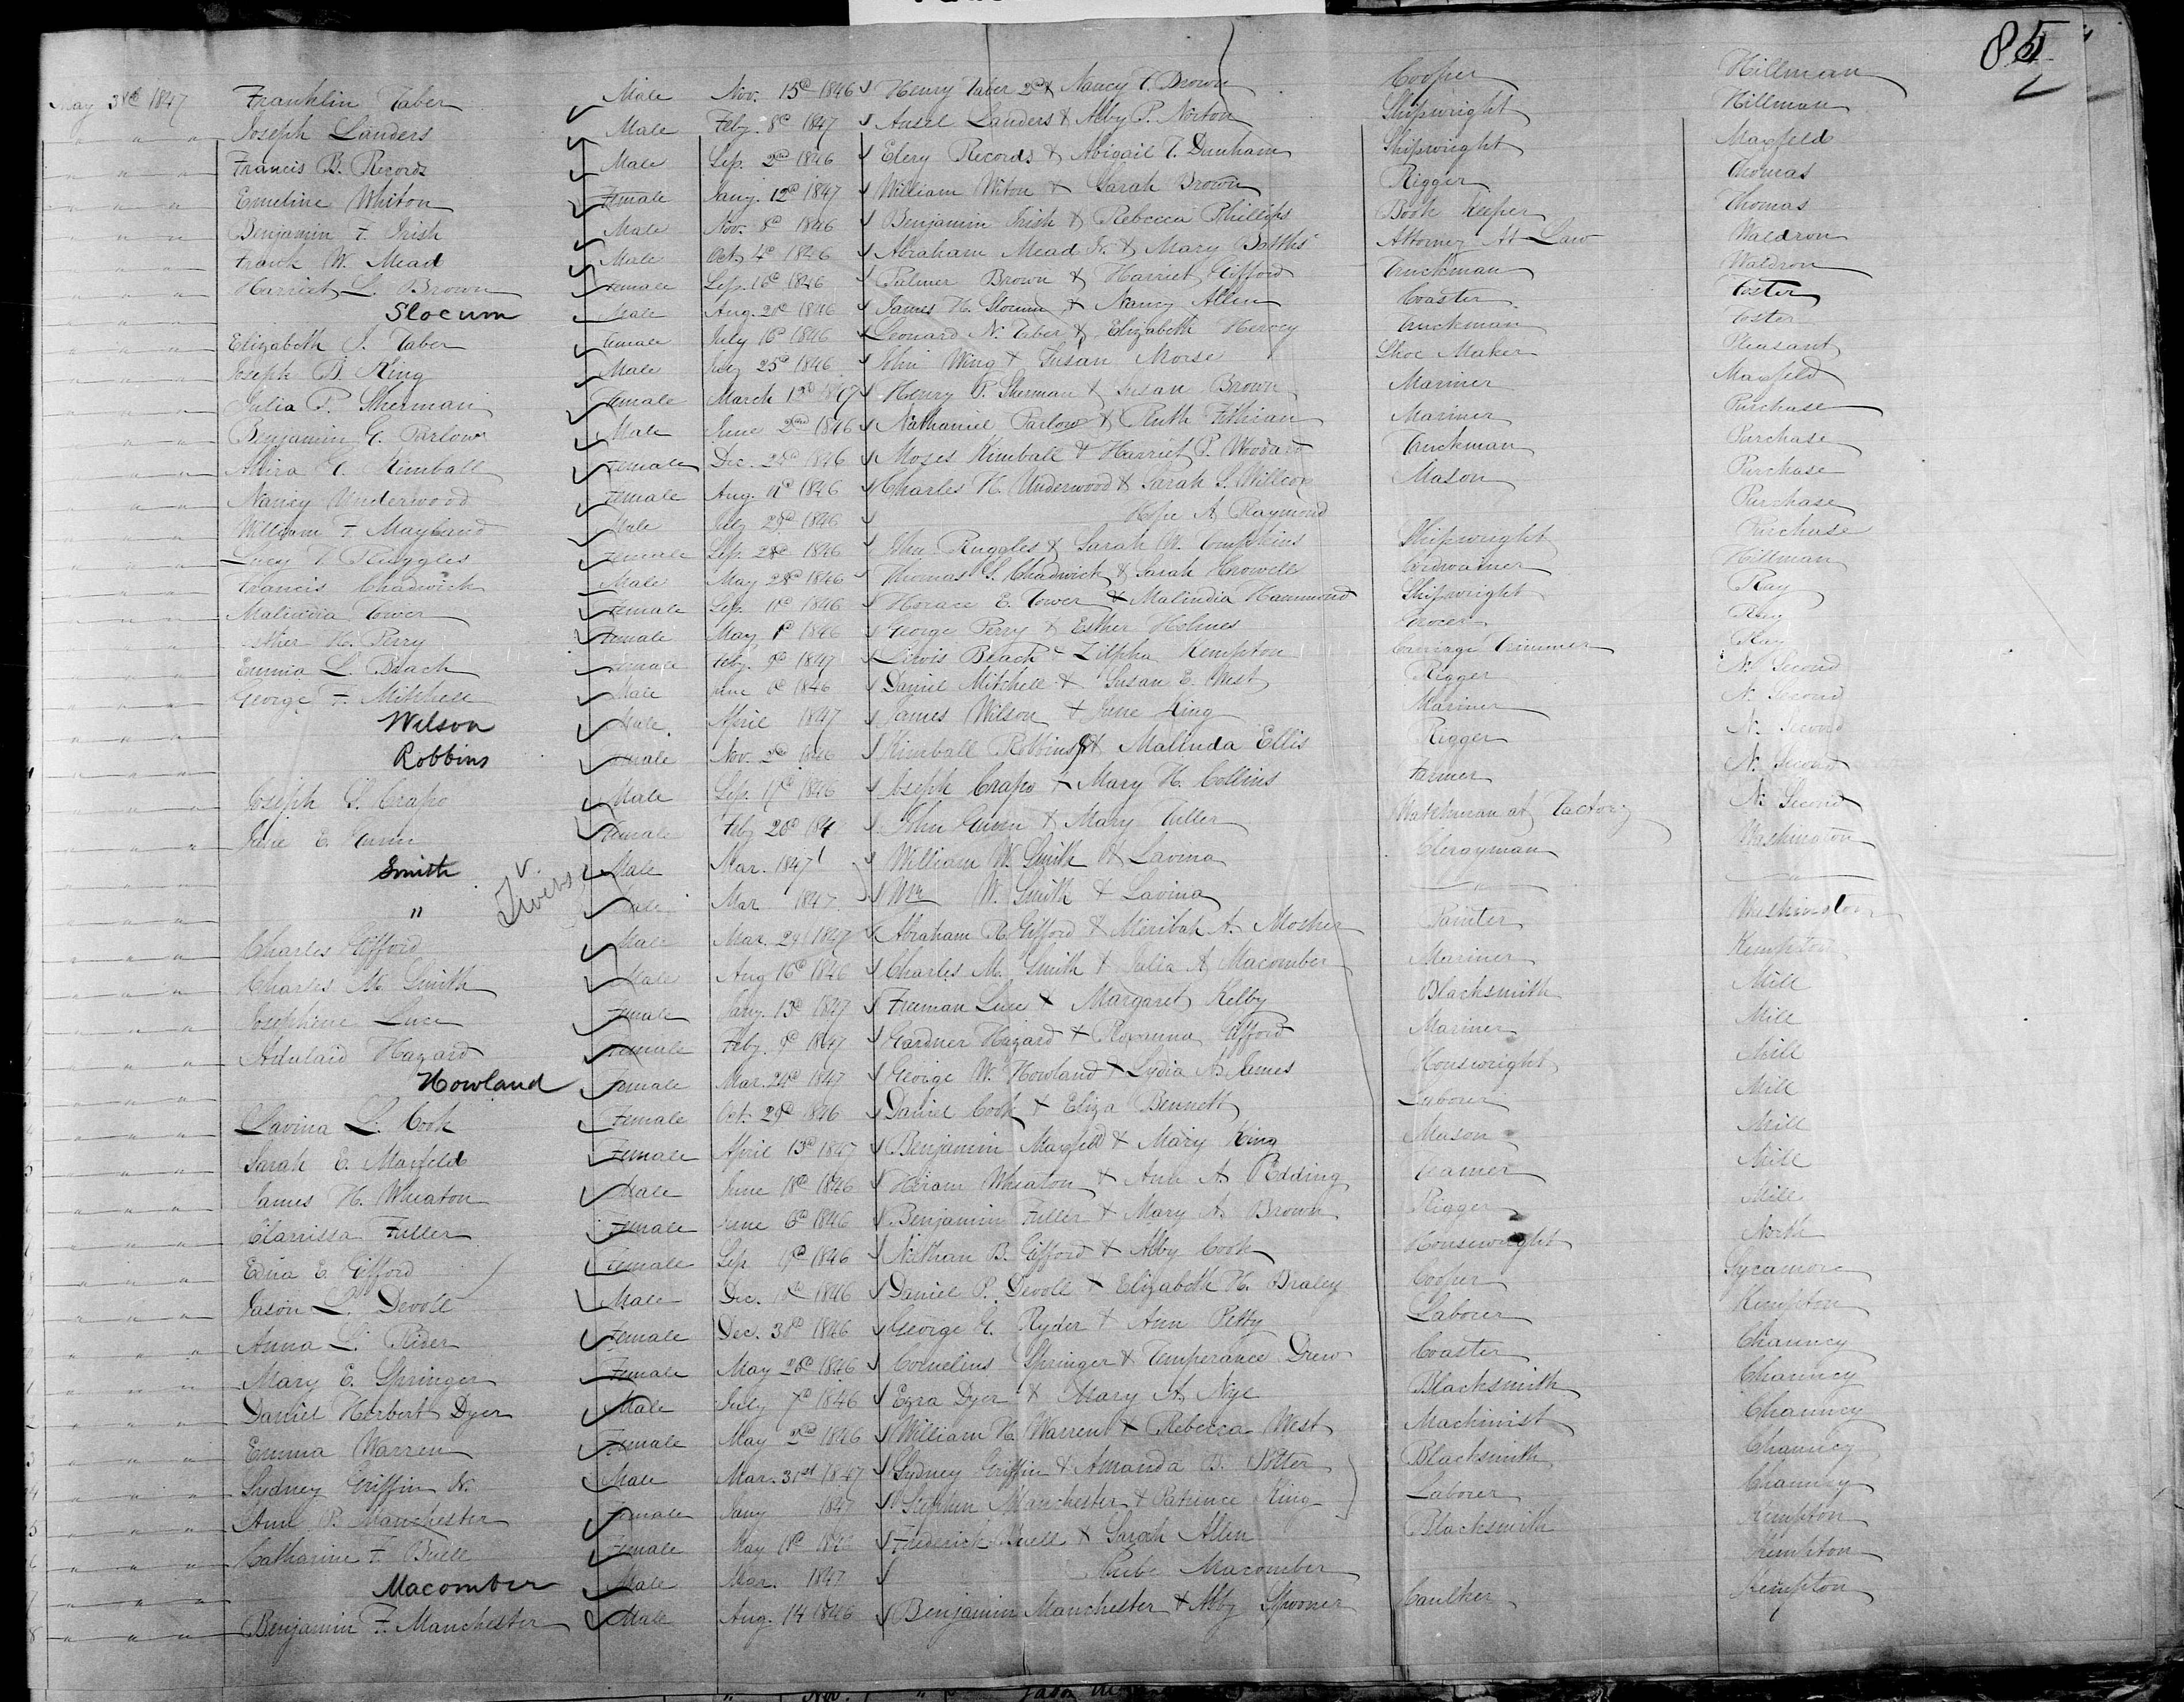 85
May 3rd 1847 Franklin Taber Male Nov. 15th 1846 Henry Taber 2nd & Nancy T. Brown Cooper Hillman
" " " Joseph Landers Male Feby. 8th 1847 Ansel Landers & Abby P. Norton Shipwright Hillman
" " " Francis B. Records Male Sep. 2nd 1846 Elery Records & Abigail T. Dunham Shipwright Maxfield
" " " Emeline Whiton Female Jany. 12th 1847 William Witon & Sarah Brown Rigger Thomas
" " " Benjamin F. Irish Male Nov. 8th 1846 Benjamin Irish & Rebecca Phillips Book Keeper Thomas
" " " Frank W. Mead Male Oct. 4th 1846 Abraham Mead Jr. & Mary Attorney At Law Waldron
" " " Harriet L. Brown Female Sep. 16th 1846 Palmer Brown & Harriet Gifford Truckman Waldron
" " " Slocum Male Aug. 1846 James H. Slocum & Nancy Allen Coaster Foster
" " " Elizabeth J. Taber Female July 16th 1846 Leonard N. Taber & Elizabeth Truckman Foster
" " " Joseph B. King Male July 25th 1846 John Wing & Susan Morse Shoe Maker Pleasant
" " " Julia P. Sherman Female March 1847 Henry P. Sherman & Susan Brown Mariner Maxfield
" " " Benjamin G. Parlow Male June 2nd 1846 Nathaniel Parlow & Ruth Mariner Purchase
" " " Kimball Female Dec. 24th 1846 Moses Kimball & Harriet P. Woodard Truckman Purchase
" " " Nancy Underwood Female Aug. 11th 1846 Charles H. Underwood & Sarah S. Willcox Mason Purchase
" " " William F. Male July 1846 Hope A. Raymond Purchase
" " " Lucy T. Ruggles Female Sep. 1846 John Ruggles & Sarah W. Tompkins Shipwright Purchase
" " " Francis Chadwick Male May 28th 1846 Thomas S. Chadwick & Sarah Crowell Cordwainer Hillman
" " " Malindia Tower Female Sep. 1846 Horace E. Tower & Malindia Hammond Shipwright Ray
" " " Esther H. Perry Female May 1st 1846 George Perry & Esther Holmes Grocer Ray
" " " Emma L. Beach Female Feby. 9th 1847 Lewis Beach & Zilpha Kempton Carriage Trimmer Ray
" " " George F. Mitchell Male June 6th 1846 Daniel Mitchell & Susan E. West Rigger N. Second
" " " Wilson Male April 1847 James Wilson & Jane King Mariner N. Second
" " " Robbins Female Nov. 1846 Kimball Robbins & Malinda Ellis Rigger N. Second
" " " Joseph S. Crapo Male Sep. 1846 Joseph Crapo & Mary H. Collins Farmer N. Second
" " " Jane E. Female Feby 20th 184 John & Mary Tuller Watchman at Factory N. Second
" " " Smith Male Mar. 1847 William W. Smith & Lavina Clergyman Washington
" " " " Twins Male Mar 1847 Wm W. Smith & Lavina "
" " " Charles Gifford Male Mar. 29 1847 Abraham R. Gifford & Meribah A. Mosher Painter Washington
" " " Charles M. Smith Male Aug 16th 1846 Charles M. Smith & Julia A. Macomber Mariner Kempton
" " " Josephine Luce Female Jany. 13th 1847 Freeman Luce & Margaret Kelby Blacksmith Mill
" " " Adalaid Hazard Female Feby. 9th 1847 Gardner Hazard & Roxanna Gifford Mariner Mill
" " " Howland Female Mar. 24th 1847 George W. Howland & Lydia A. James Housewright Mill
" " " Lavina L. Cook Female Oct. 29th 1846 Daniel Cook & Eliza Bennett Laborer Mill
" " " Sarah E. Maxfield Female April 13th 1847 Benjamin Maxfield & Mary King Mason Mill
" " " James H. Wheaton Male June 18th 1846 Hiram Wheaton & Ann A. Redding Teamer Mill
" " " Clarrissa Fuller Female June 6th 1846 Benjamin Fuller & Mary A. Brown Rigger Mill
" " " Edna E. Gifford Female Sep 9th 1846 Nathan B. Gifford & Abby Cook Housewright North
" " " Jason L. Devoll Male Dec. 1846 Daniel P. Devoll & Elizabeth H. Braley Cooper Sycamore
" " " Anna L. Rider Female Dec. 30th 1846 George G. Ryder & Ann Petty Laborer Kempton
" " " Mary E. Springer Female May 20th 1846 Cornelius Springer & Temperance Drew Coaster Chauncy
" " " Daniel Herbert Dyer Male July 7th 1846 Ezra Dyer & Mary A. Nye Blacksmith Chauncy
" " " Emma Warren Female May 2nd 1846 William H. Warren & Rebecca West Machinist Chauncy
" " " Sydney Griffin Jr. Male Mar. 31st 1847 Sydney Griffin & Amanda B. Potter Blacksmith Chauncy
" " " Ann P. Manchester Female Jany 1847 Stephen Manchester & Patience King Laborer Chauncy
" " " Catharine F. Buell Female May 18th 1846 Frederick Buell & Sarah Allen Blacksmith Kempton
" " " Macomber Male Mar. 1847 Macomber Kempton
" " " Benjamin F. Manchester Male Aug. 14 1846 Benjamin Manchester & Abby Spooner Caulker Kempton